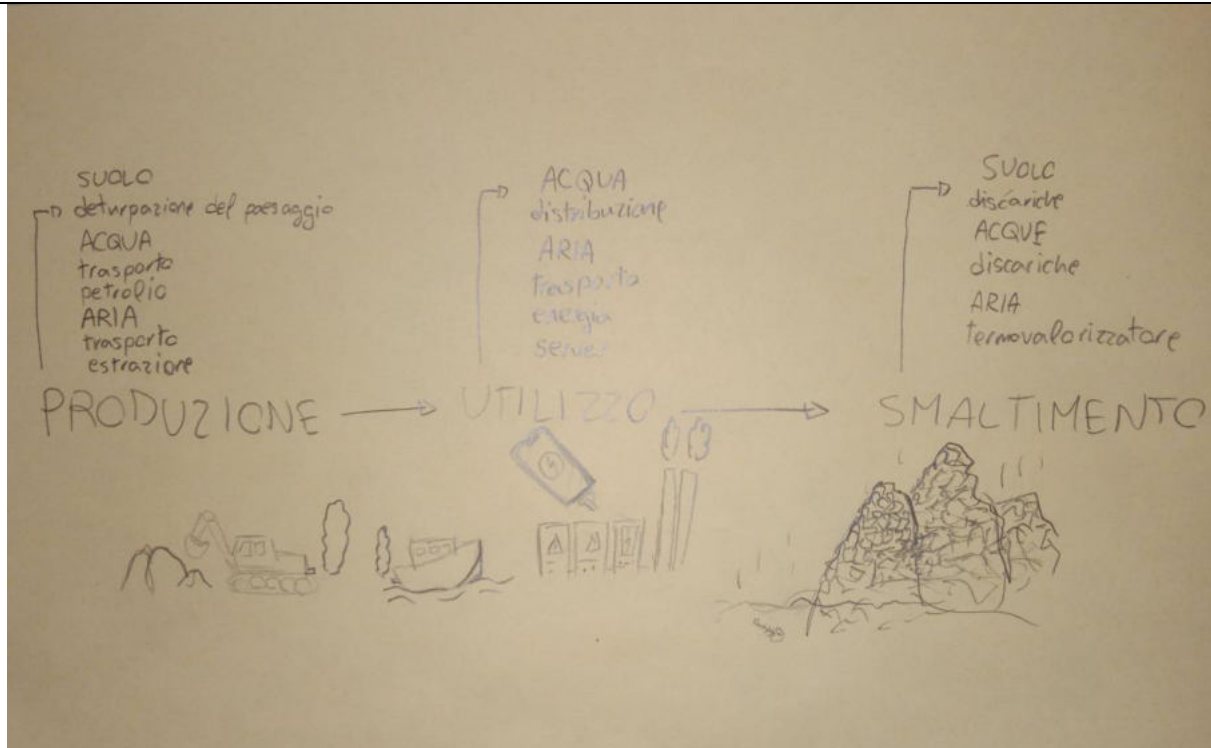 SUOLO
deturpazione del paesaggio
ACQUA
trasporto
petrolio
ARIA
trasporto
estrazione
PRODUZIONE
ACQUA
distribuzione
ARIA
trasporto
energia
server
UTILIZZO
SUOLO
discariche
ACQUE
discariche
ARIA
termovalorizzatore
SMALTIMENTO